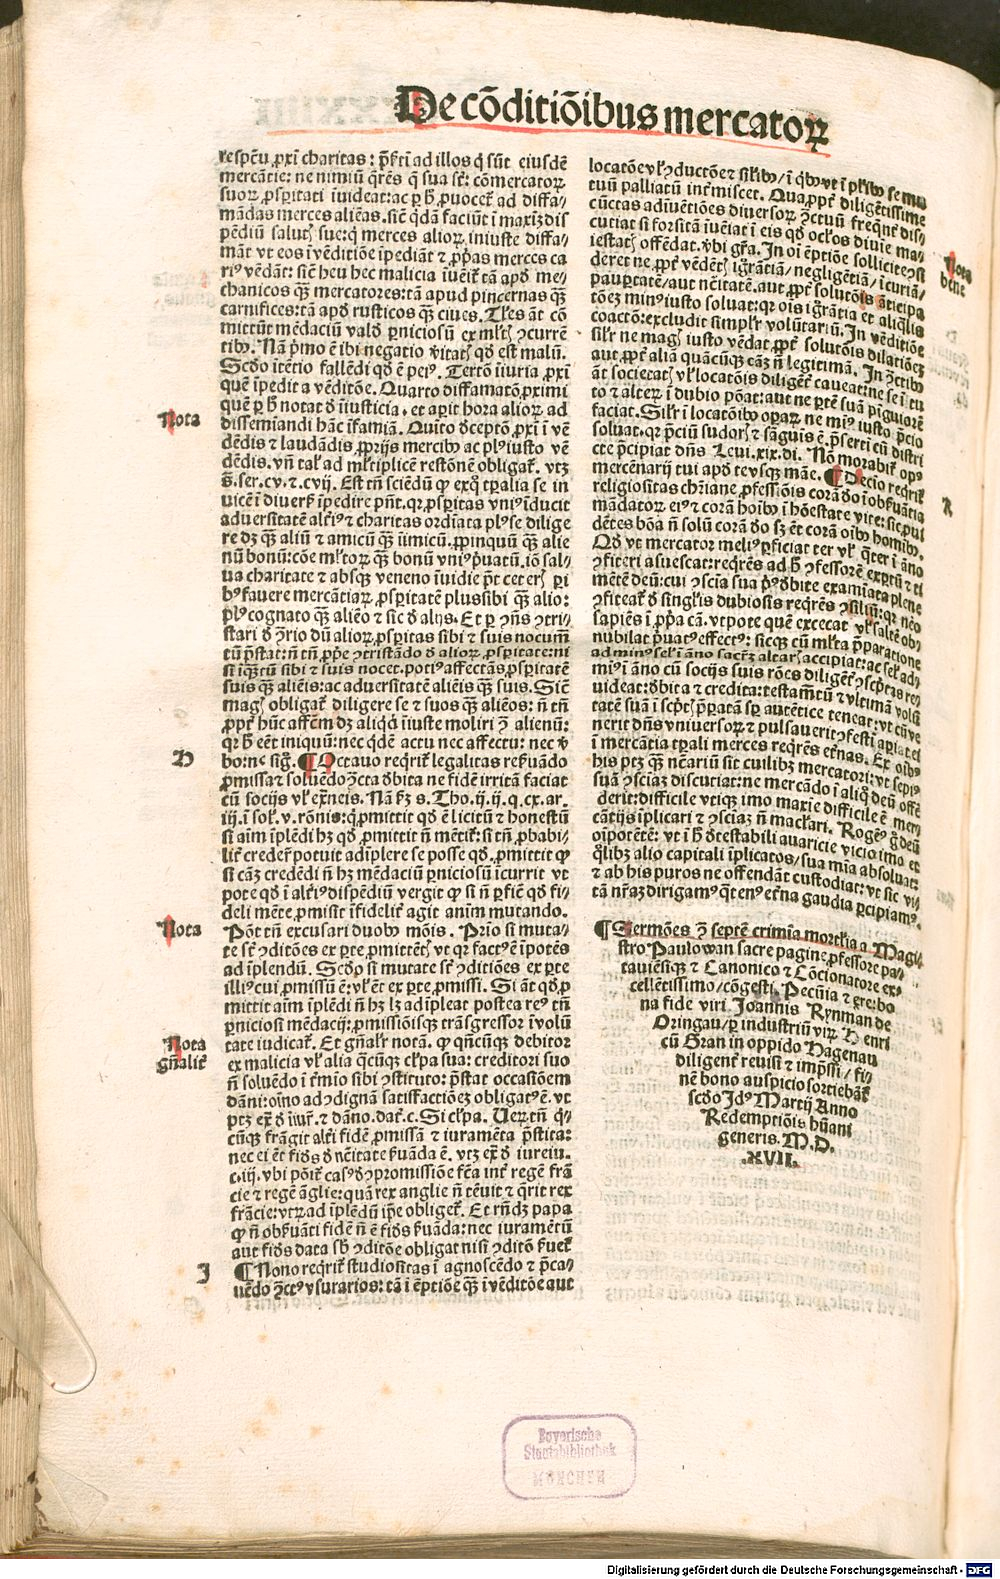 De cōditiōibus mercatoꝝ
respctu ꝓxi charitas: p̄sti ad illos q̇ sūt eiusdē
mercātie: ne nimiū q̄res q̄ sua st: cōmercatoꝝ
suoꝝ ꝓspitati iuideat: ac ꝑ h ꝓuocet ad diffa-
mādas merces aliēas. sic q̇dā faciūt i maxiȝ dis
pēdiū salut sue: q̇ merces alioꝝ iniuste diffa-
māt vt eos i vēditiōe ipediāt ⁊ ꝓprias merces ca
riꝰ vēdāt: sic heu hec malicia iuēit tā apd me-
chanicos q̄ȝ mercatores: tā apud pincernas q̄ȝ
carnifices: tā apd rusticos q̄ȝ ciues. Tales āt cō
mittūt mēdaciū valde ꝑniciosū ex mlt ꝯcurrē
tibꝰ. Nā p̄mo ē ibi negatio v̄itat qd est malū.
Scdo itētio fallēdi qd ē peiꝰ. Tertō iiuria ꝓxi
quē ipedit a vēditōe. Quarto diffamatō ꝓximi
Nota
quē ꝑ h notat d iiusticia, et aꝑit hora alioꝝ ad
dissemiandi hāc ifamiā. Quito dceptō ꝓxi i vē
dēdis ⁊ laudādis ꝓprijs mercibꝰ ac plꝰ iusto vē
dēdis. vn tal ad mltiplicē restōnē obligat. vtȝ
s. ser. cv. ⁊ cvij. Est tn sciēdū ꝙ ex quo tꝑalia se in
uicē i diuersis ipedire pnt. qꝛ ꝓspitas vniꝰ iducit
aduersitatē altiꝰ ⁊ charitas ordiata plꝰ se dilige
re dȝ q̄ȝ aliū ⁊ amicū q̄ȝ iimicū, ꝓpinquū q̄ȝ alie
nū bonū: cōe mltoꝝ q̄ȝ bonū vniꝰ p̄uatū. iō sal-
ua charitate ⁊ absq̄ȝ veneno iuidie pt cet eris ꝑi
bꝰ fauere mercātiaꝝ ꝓspitatē plus sibi q̄ȝ alio:
plꝰ cognato q̄ȝ aliēo ⁊ sic d alijs. Et ꝑ ꝯns ꝯtri-
stari d ꝯrio dū alioꝝ ꝓspitas sibi ⁊ suis nocum̄
tū p̄stat: n̄ tn ꝓpe ꝯtristādo d alioꝝ ꝓspitate: ni
si iq̄ȝtū sibi ⁊ suis nocet. potiꝰ affectās ꝓspitatē
suis q̄ȝ aliēis: ac aduersitatē aliēis q̄ȝ suis. Sic
magis obligat diligere se ⁊ suos q̄ȝ aliēos: n̄ tn
ꝓpt hūc affectm dȝ aliqd iiuste moliri ꝯ alienū:
qꝛ h eēt iniquū: nec q̇dē actu nec affectu: nec v̄
D
bo: nec sig. ¶ Octauo reqrit legalitas refuādo
ꝓmissa ⁊ soluēdo ꝯcta dbita ne fidē irritā faciat
cū socijs vl extneis. Nā fȝ s. Tho. ij. ij. q. cx. ar.
iij. i sol. v. rōnis: q̇ ꝓmittit qd ē licitū ⁊ honestū
si aīm iplēdi hȝ qd ꝓmittit n̄ mētit: si tn ꝓbabi-
lit credert potuit adiplere se posse qd ꝓmittit ꝙ
si cāȝ credēdi n̄ hȝ mēdaciū ꝑniciosū icurrit vt
pote qd i altiꝰ dispēdiū vergit ꝙ si n̄ ꝑficit qd fi-
deli mēte ꝓmisit ifidelit agit animū mutando.
Nota
Pōt tn excusari duobꝰ mōis. Prio si muta-
te st ꝯditōes ex pte ꝓmittēt vt qꝛ factꝰ ē ipotēs
ad iplendū. Scdo si mutate st ꝯditiōes ex pte
illiꝰ cui ꝓmissū ē: vl ēt ex pte ꝓmissi. Si āt qd ꝓ
mittit aīm iplēdi n̄ hȝ lȝ adipleat postea reꝰ tn
ꝑniciosi mēdacij: ꝓmissiōisq̄ȝ trāsgressor i volū
Nota
gn̄alit
tate iudicat. Et gn̄alit notā. ꝙ qn̄cūq̄ȝ debitor
ex malicia vl alia q̄cūq̄ȝ culpa sua: creditori suo
n̄ soluēdo i tmio sibi ꝯstituto: p̄stat occasiōem
dāni: oīno ad ꝯdignā satisfactiōeȝ obligatꝰ ē. vt
ptȝ extra d iiur. ⁊ dāno. dat. c. Si clpa. Uerūtn q̇-
cūq̄ȝ frāgit alteri fidē ꝓmissā ⁊ iuramēta p̄stita:
nec ei ēt fides d ncitate fuāda ē. vtȝ ext d iureiu.
c. iij. vbi pōit casꝰ d ꝯpromissiōe fca int regē frā
cie ⁊ regē āglie: quā rex anglie n̄ tēuit ⁊ q̄rit rex
frācie: vtꝝ ad iplēdū ipe obliget. Et rn̄dȝ papa
ꝙ n̄ obseruāti fidē n̄ ē fides fuāda: nec iuramētū
aut fides data sb ꝯditōe obligat nisi ꝯditō fuet
J
¶ Nono reqrit studiositas i agnoscēdo ⁊ p̄ca-
uēdo ꝯctꝰ vsurarios: tā i ēptiōe q̄ȝ i vēditōe aut
locatōe vl ꝯductōe ⁊ silibꝰ / i q̇bꝰ vt i plibꝰ se mu
tuū palliatū intmiscet. Qua ꝓpt diligētissime
cūctas adiuētiōes diuersoꝝ ꝯctuū frequēt dis-
cutiat si forsitā iuēiat i eis qd oclos diuie ma-
iestat offēdat. vbi gra. In oi ēptiōe sollicite ꝯsi
Nota
bene
deret ne ꝓpt vēdēt igrātiā / negligētiā / icuriā /
paupertatē / aut ncitatē. aut ꝓpt solutōis āticipa
tōeȝ minꝰ iusto soluat: qꝛ ois igrātia et aliqlis
coactō: excludit simplr volūtariū. In vēditiōe
silr ne magis iusto vēdat ꝓpt solutōis dilatiōeȝ
aut ꝓpt aliā quācūq̄ȝ cāȝ n̄ legitimā. In ꝯctibꝰ
āt societat vl locatōis diligēt caueat: ne se i tu
to ⁊ alteꝝ i dubio pōat: aut ne ptē suā piguiorē
faciat. Silr i locatōibꝰ oꝑaꝝ ne miꝰ iusto p̄cio
soluat. qꝛ p̄ciū sudoris ⁊ sāguis ē, p̄serti cū distri
cte p̄cipiat dn̄s Leui. xix. di. Nō morabit opꝰ
mercēnarij tui apd te vsq̄ȝ māe. ¶ Decio reqrit
K
religiositas ch̄iane ꝓfessiōis corā do i obfuātia
mādatoꝝ eiꝰ ⁊ corā hoibꝰ i hōestate vite: sic pui
dētes bōa n̄ solū corā do sȝ ēt corā oibꝰ homibꝰ.
Qd vt mercator meliꝰ ꝑficiat ter vl q̄ter i āno
ꝯfiteri asuescat: reqrēs ad h ꝯfessorē exptū ⁊ ti
mētē deū: cui ꝯsciā sua p̄ꝰ dbite examiata plene
ꝯfiteat d singlis dubiosis reqrēs ꝯsiliū: qꝛ neo
sapiēs i ꝓpria cā. vtpote quē excecat vl saltē ob-
nubilat p̄uatꝰ effectꝰ: sicq̄ȝ cū mlta p̄paratione
ad minꝰ sel i āno sacrȝ altaris accipiat: ac sel ad-
miꝰ i āno cū socijs suis rōes diligēt ꝯscptas re-
uideat: dbita ⁊ credita: testamētū ⁊ vltimā volū
tatē suā i scpt p̄patā sꝑ autētice teneat: vt cū ve
nerit dn̄s vniuersoꝝ ⁊ pulsauerit ꝯfesti aperiat ei
i mercātia tꝑali merces reqrēs etnas. Ex oibꝰ
his ptȝ q̄ȝ ncēariū sit cuilibȝ mercatori: vt sepiꝰ
suā ꝯsciāȝ discutiat: ne mercādo i aliq̇ deū offē
derit: difficile vtiq̄ȝ imo maxie difficile ē mer-
cātijs iplicari ⁊ ꝯsciāȝ n̄ maclari. Rogeꝰ g deū
oīpotētē: vt i h dtestabili auaricie vicio imo et
q̇libȝ alio capitali iplicatos / sua mīa absoluat:
⁊ ab his puros ne offendāt custodiat: vt sic vi-
tā nrāȝ dirigamꝰ qt enꝰ etna gaudia ꝑcipiamꝰ.
¶ Sermōes ꝯ septē crimīa mortlia a Magi
stro Paulo wan sacre pagine ꝓfessore pa-
tauiēsiq̄ȝ ⁊ Canonico ⁊ Cōcionatore ex-
cellētissimo / cōgesti. Pecūia ⁊ ere: bo
na fide viri Joannis Rynman de
Oringau / ꝑ industriū virꝝ Henri
cū Gran in oppido Hagenau
diligent reuisi ⁊ impssi / fi-
nē bono auspicio sortiebāt
scdo Idꝰ Martij Anno
Redemptiōis hūani
generis. M. D.
.XVII.
Bayerische
Staatsbibliothek
MÜNCHEN
Digitalisierung gefördert durch die Deutsche Forschungsgemeinschaft - DFG